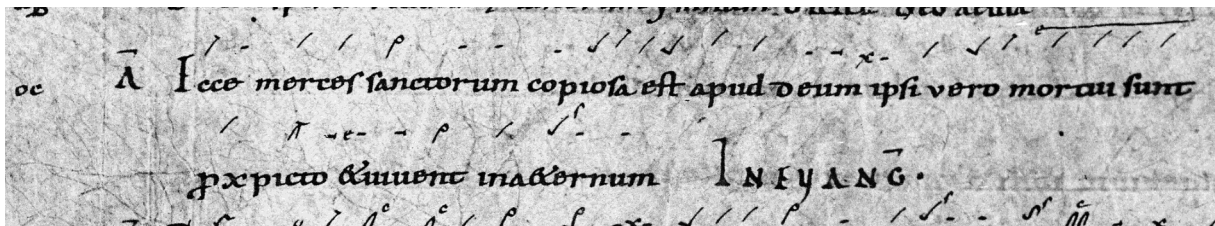 oc Ā Ecce merces sanctorum copiosa est apud deum ipsi vero mortui sunt
p xpicto & vivent in a&ernum IN EVANG̅.